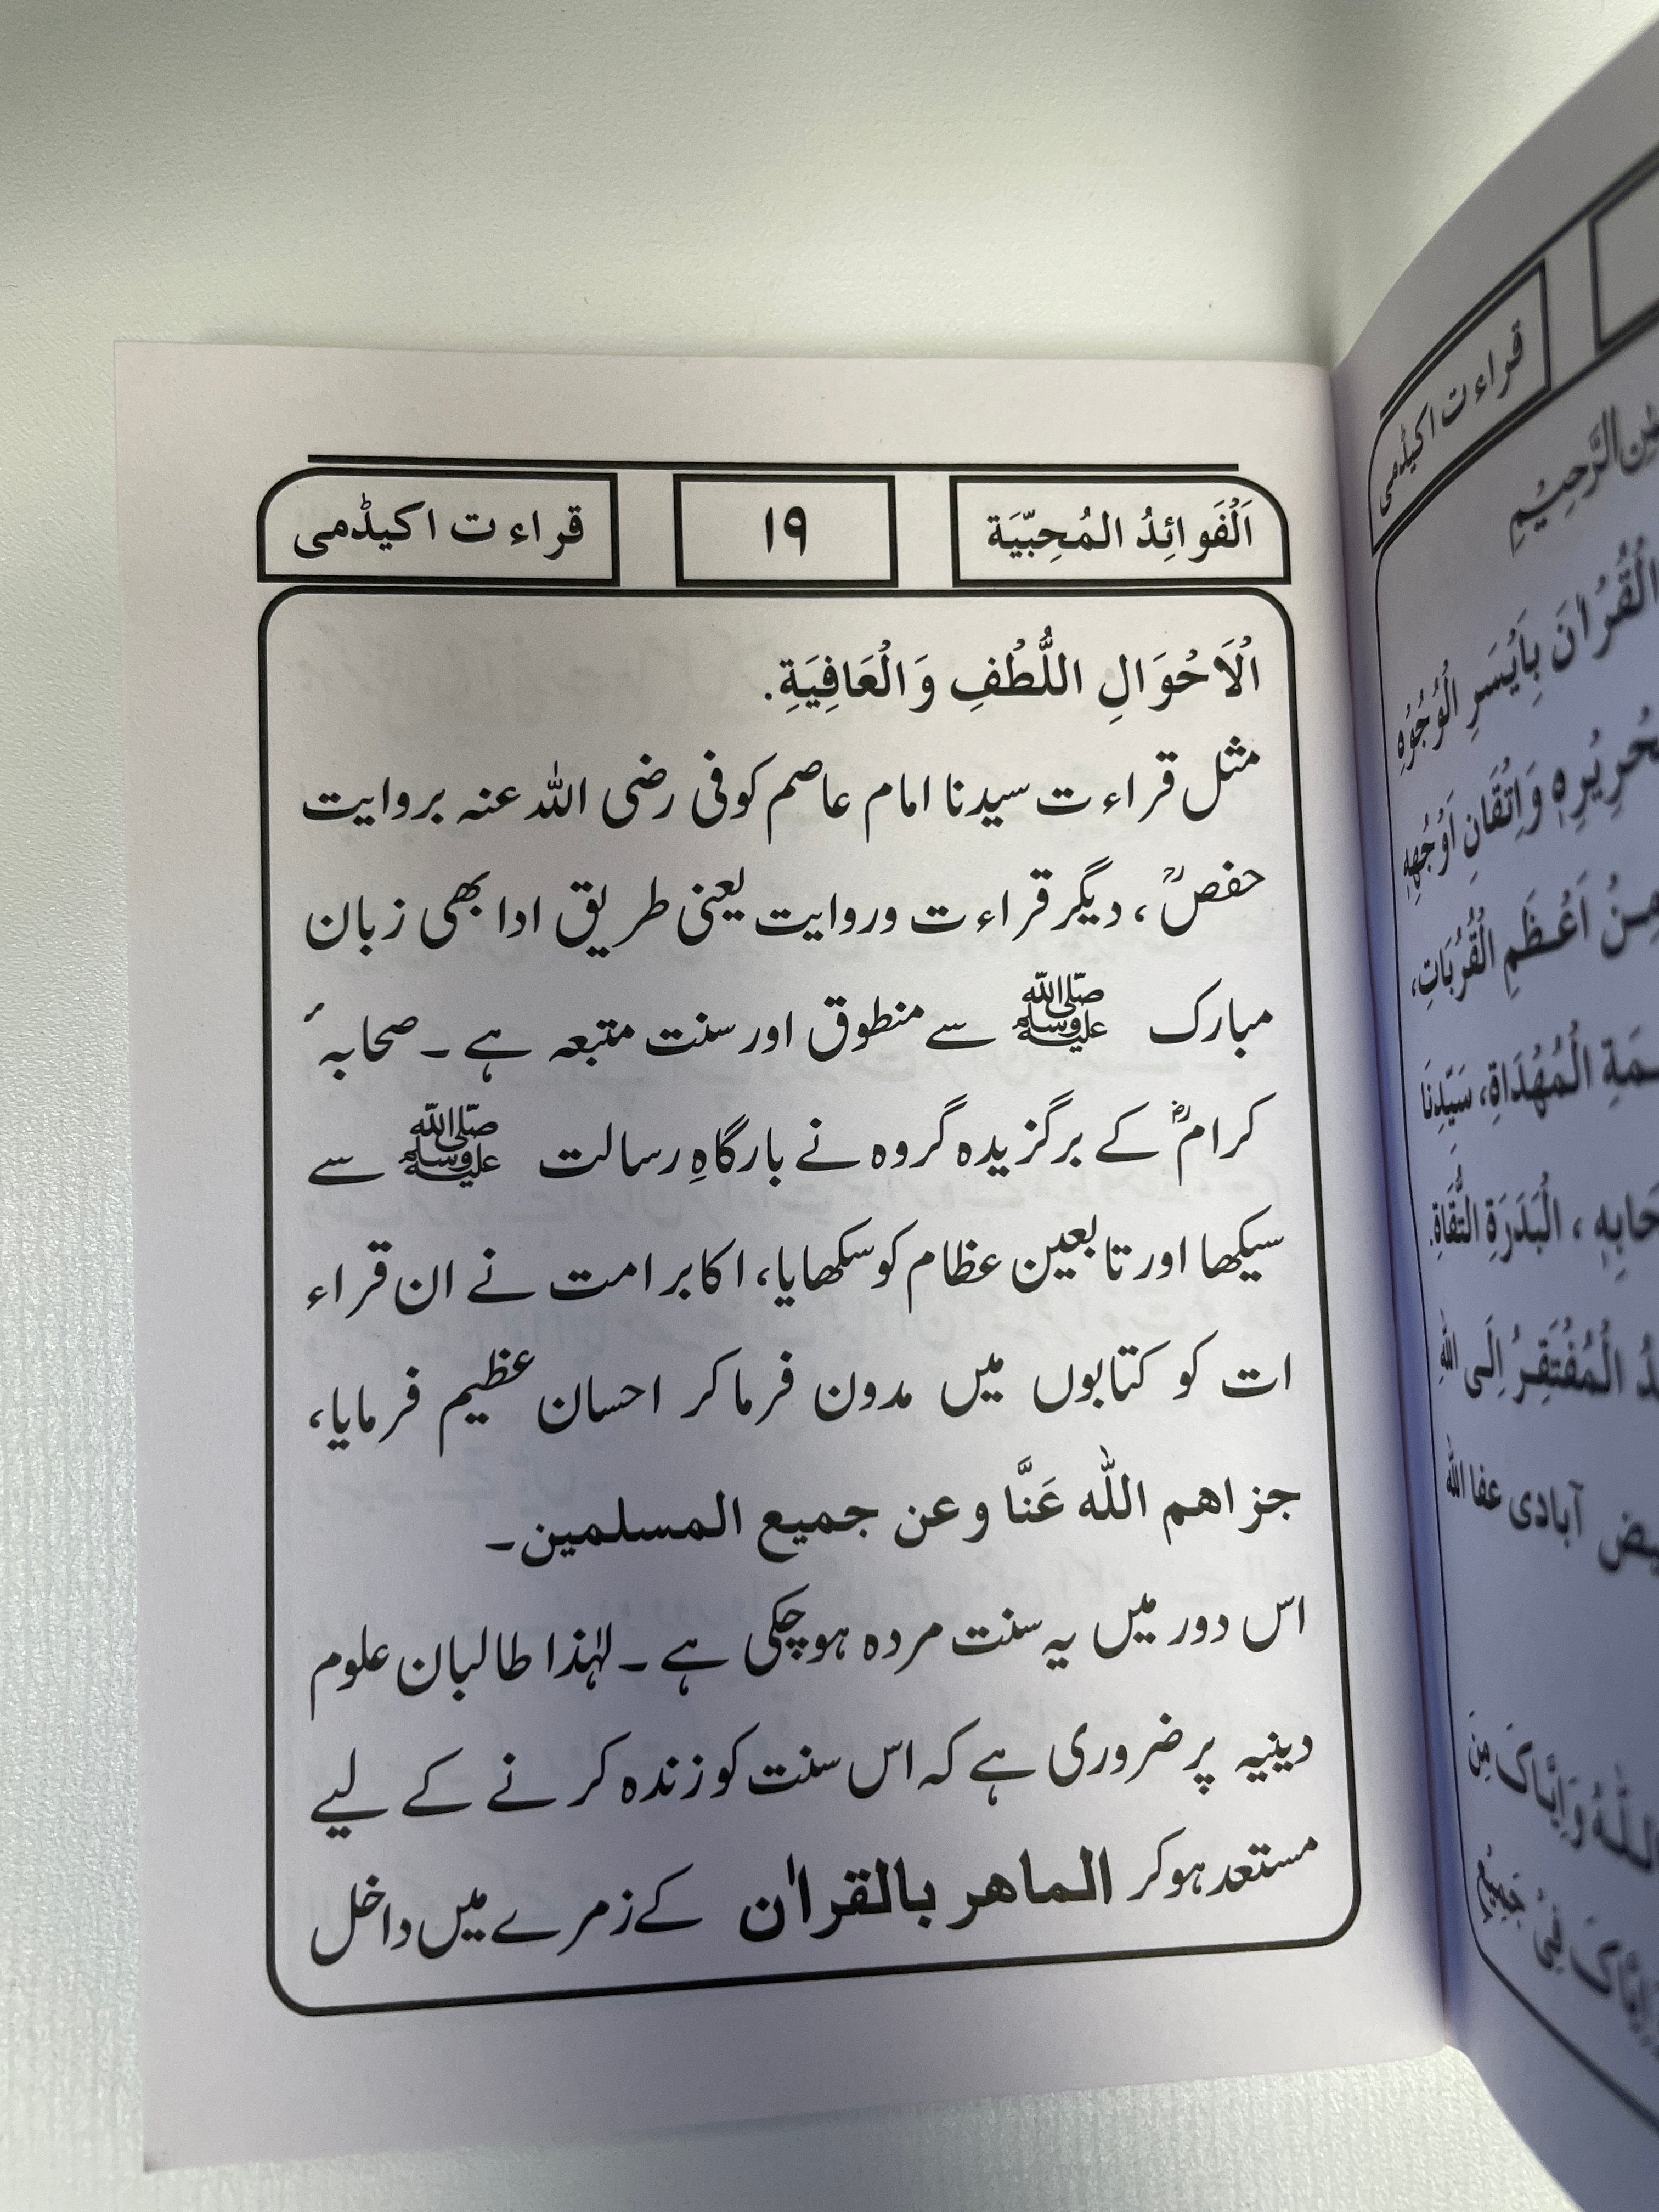 اَلْفَوائِدُ المُحِبِّيَة ١٩ قراءت اکیڈمی
اْلَاحْوَالِ اللُّطْفِ وَالْعَافِيَةِ.
مثل قراءت سیدنا امام عاصم کوفی رضی اللہ عنہ بروایت
حفصؒ، دیگر قراءت وروایت یعنی طریق ادا بھی زبان
مبارک ﷺ سے منطوق اور سنت متبعہ ہے۔ صحابہٴ
کرامؓ کے برگزیدہ گروہ نے بارگاہِ رسالت ﷺ سے
سیکھا اور تابعین عظام کو سکھایا، اکابر امت نے ان قراء
ات کو کتابوں میں مدون فرما کر احسان عظیم فرمایا،
جزاهم الله عَنَّا وعن جميع المسلمين۔
اس دور میں یہ سنت مردہ ہوچکی ہے۔ لہٰذا طالبان علوم
دینیہ پر ضروری ہے کہ اس سنت کو زندہ کرنے کے لیے
مستعد ہوکر الماهر بالقراٰن کے زمرے میں داخل
قراءت اکیڈمی
الرَّحِيْمِ
الْقُرْاٰنَ بِاَيْسَرِ الْوُجُوْهِ
وَاِتْقَانِ اَوْجُهِهٖ
مِنْ اَعْظَمِ الْقُرُبَاتِ،
الْمُهْدَاةِ، سَيِّدِنَا
، الْبَدَرَةِ التُّقَاةِ.
الْمُفْتَقِرُ اِلَى اللهِ
آبادی عفا الله
وَاِيَّاكَ مِنَ
فِيْ جَمِيْعِ